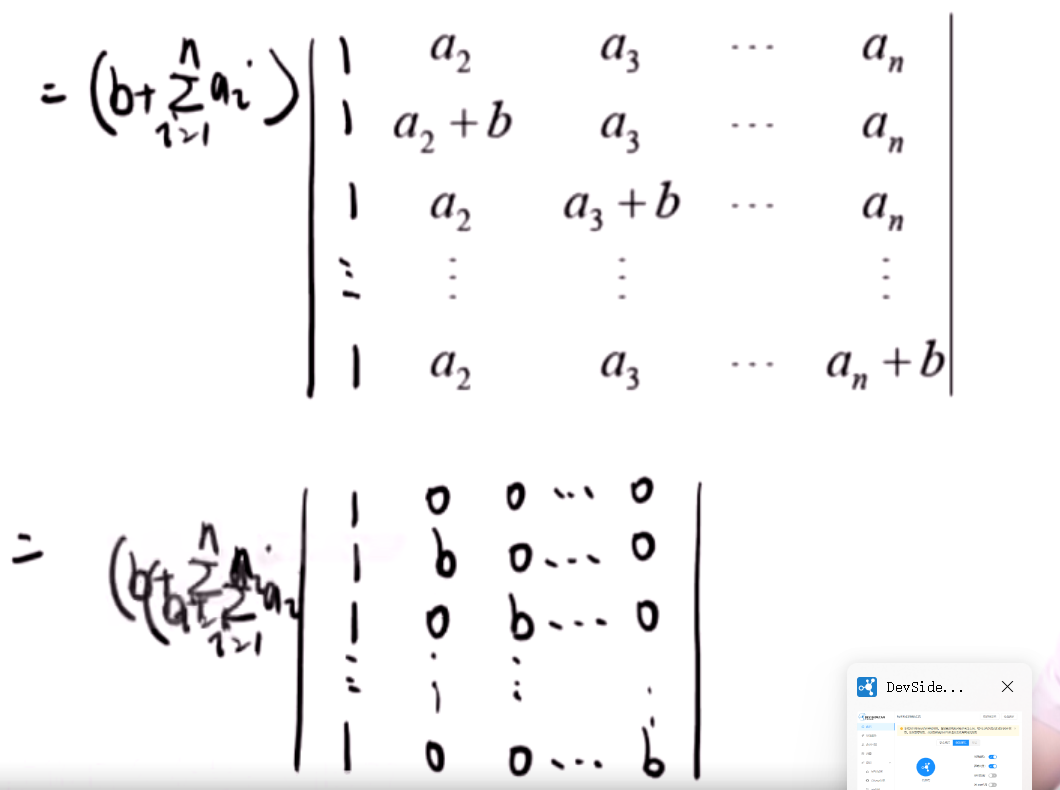 = (b+ \sum_{i=1}^{n} a_i) | 1 a_2 a_3 ⋯ a_n |
1 a_2 + b a_3 ⋯ a_n
1 a_2 a_3 + b ⋯ a_n
⋮ ⋮ ⋮ ⋮
1 a_2 a_3 ⋯ a_n + b
= (b+ \sum_{i=1}^{n} a_i | 1 0 0 ⋯ 0 |
1 b 0 ⋯ 0
1 0 b ⋯ 0
⋮ ⋮ ⋮ ⋮
1 0 0 ⋯ b
DevSide...